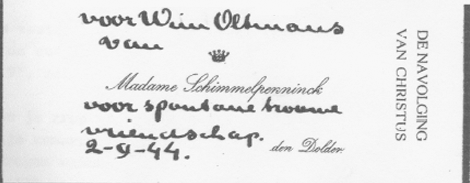 voor Wim Oltmans
van
Madame Schimmelpenninck
voor spontane trouwe
vriendschap.
2-9-44.
den Dolder.
DE NAVOLGING
VAN CHRISTUS